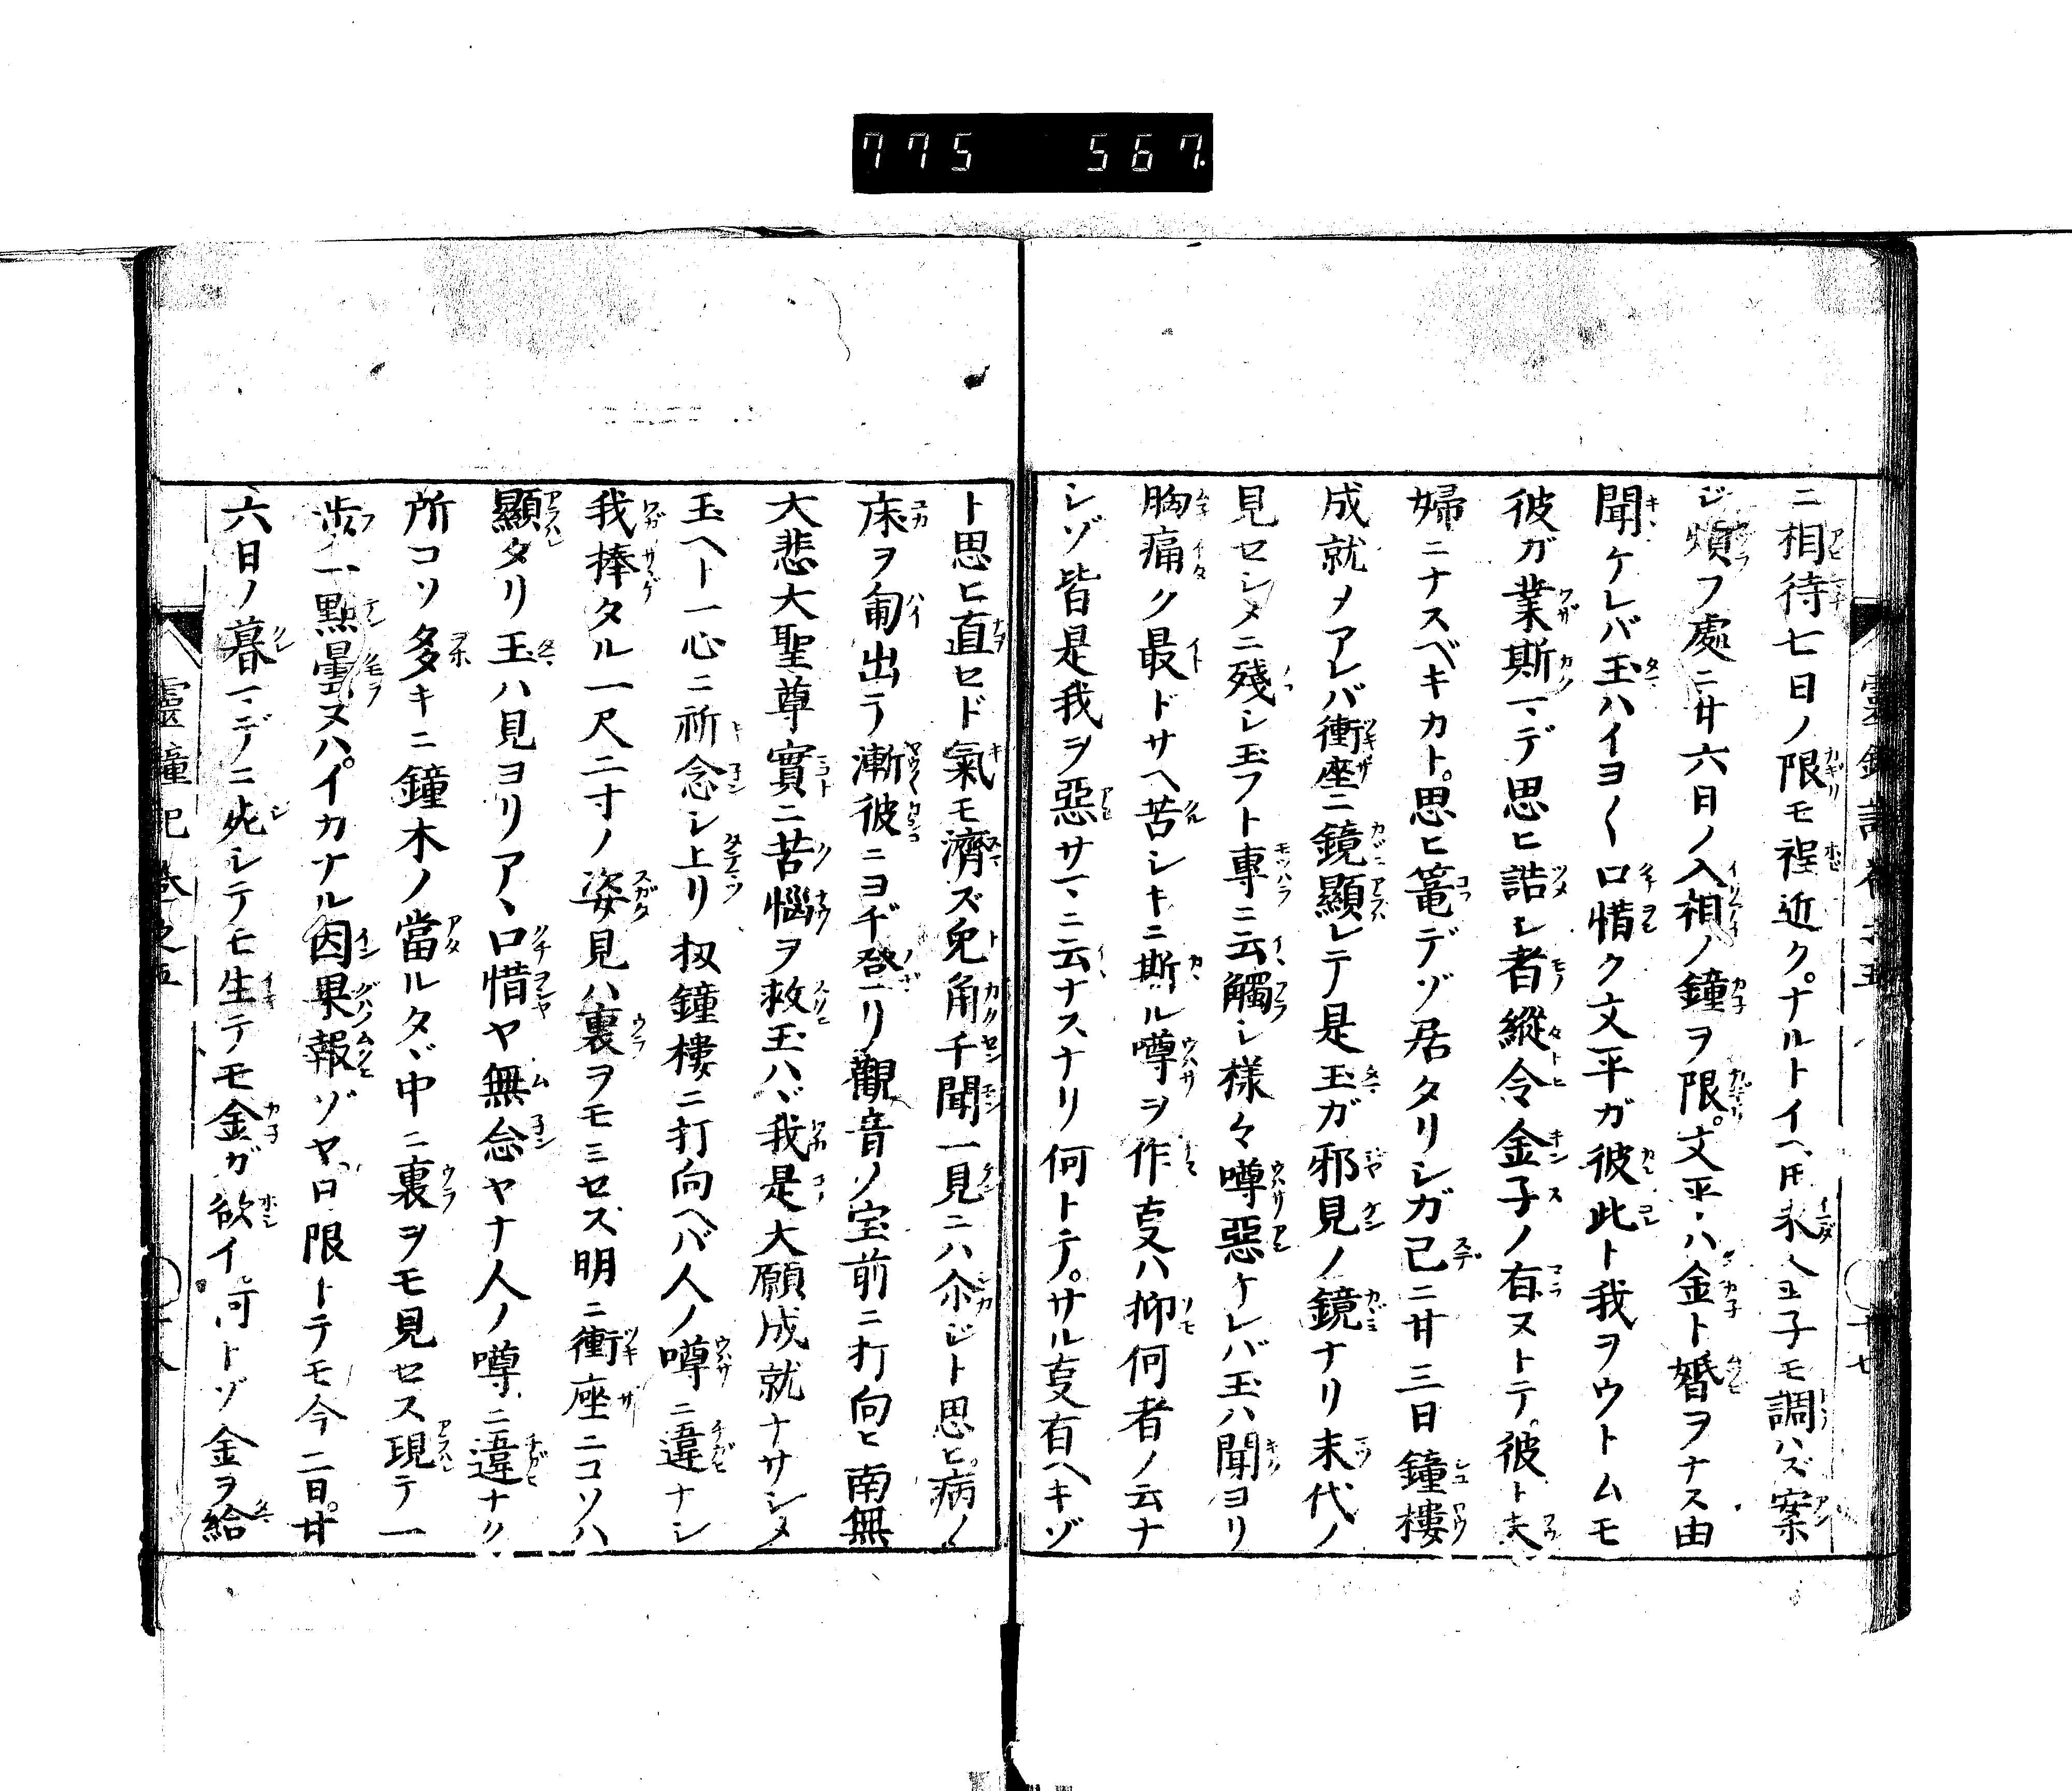 775 567
ニ相待七日ノ限モ程近ク。ナルトイヘ𪜈未金子モ調ハズ案
ジ煩フ處ニ廿六日ノ入相ノ鐘ヲ限。文平ハ金ト婚ヲナス由
聞ケレバ玉ハイヨ〱口惜ク文平ガ彼此ト我ヲウトムモ
彼ガ業斯マデ思ヒ詰レ者縱令金子ノ有ヌトテ。彼ト夫
婦ニナスベキカト。思ヒ篭デゾ居タリシガ已ニ廿三日鐘樓
成就〆アレバ衝座ニ鏡顯レテ是玉ガ邪見ノ鏡ナリ末代ノ
見セシメニ殘シ玉フト專ニ云觸シ様々噂惡ケレバ玉ハ聞ヨリ
胸痛ク最ドサヘ苦シキニ斯ル噂ヲ作ル叓ハ抑何者ノ云ナ
シゾ皆是我ヲ惡サマニ云ナスナリ何トテ。サル叓有ヘキゾ
ト思ヒ直セド氣モ濟ズ兎角千聞一見ニハ尒ジト思ヒ。病ノ
床ヲ匍出テ漸彼ニヨヂ登リ觀音ノ宝前ニ打向ヒ南無
大悲大聖尊實ニ苦惱ヲ救玉ハヾ我是大願成就ナサシメ
玉ヘト一心ニ祈念シ上リ扨鐘樓ニ打向ヘバ人ノ噂ニ違ナシ
我捧タル一尺二寸ノ姿見ハ裏ヲモミセズ明ニ衝座ニコソハ
顯タリ玉ハ見ヨリアヽ口惜ヤ無念ヤナ人ノ噂ニ違ナク
所コソ多キニ鐘木ノ當ルタヾ中ニ裏ヲモ見セス現テ一
歩一點曇ヌハ。イカナル因果報ゾヤ。日限トテモ今二日。廿
六日ノ暮マデニ死シテモ生テモ金ガ欲イ何トゾ金ヲ給
靈鐘記 巻之五